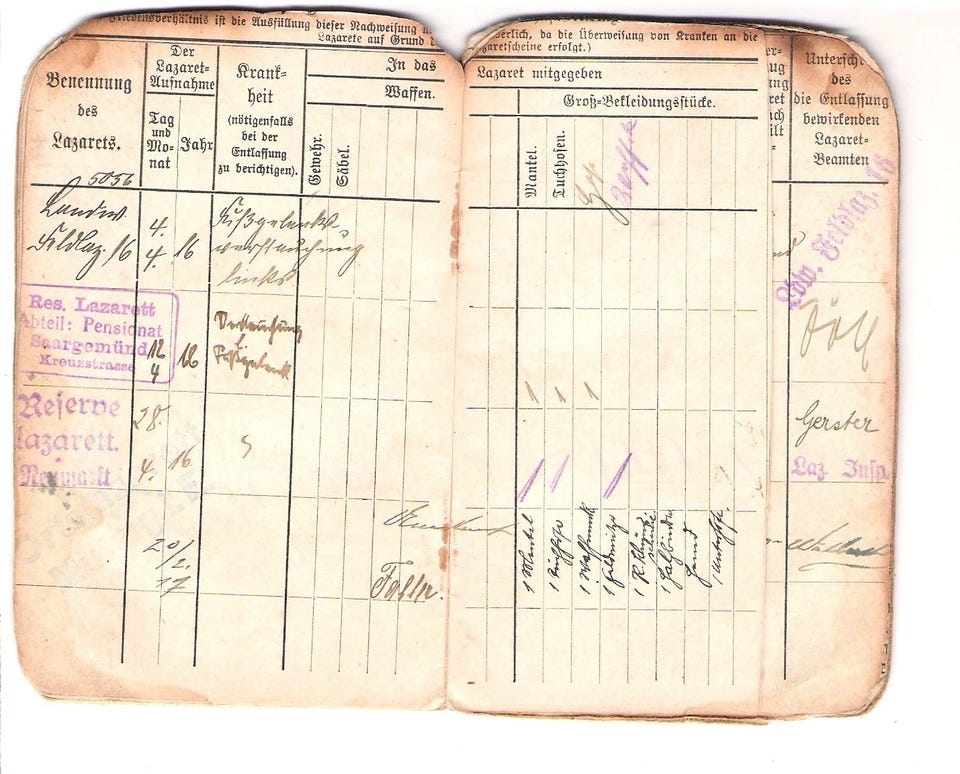 Friedensverhältnis ist die Ausfüllung dieser Nachweisung
Lazarete auf Grund
Benennung
des
Lazarets.
Der
Lazaret-
Aufnahme
Tag
und
Mo-
nat
Jahr
Krank-
heit
(nötigenfalls
bei der
Entlassung
zu berichtigen).
In das
Waffen.
Gewehr.
Säbel.
5056
Landw.
Feldlaz. 16
4.
4.
16
Fußgelenks
verstauchung
links
Res. Lazarett
Abteil: Pensionat
Saargemünd
Kreuzstrasse
12
4
16
Verstauchung
l.
Fußgelenk
Reserve
Lazarett.
Neumarkt
28.
4.
16
20/
2.
17
erlich, da die Überweisung von Kranken an die
zaretscheine erfolgt.)
Lazaret mitgegeben
Groß-Bekleidungsstücke.
Mantel.
Tuchhosen.
1 1 1
1 Mantel
1
1 Waffenrock
1 Feldmütze
1
1 Halsbinde
1 Hemd
1 Unterhose.
Untersch
des
die Entlassung
bewirkenden
Lazaret-
Beamten
Ldw. Feldlaz. 16
Gerster
Laz. Insp.